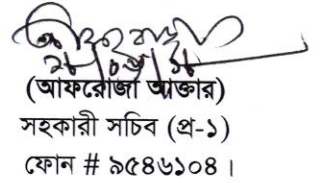 (আফরোজা আক্তার)
সহকারী সচিব (প্র-১)
ফোন # ৯৫৪৬১০৪ ।